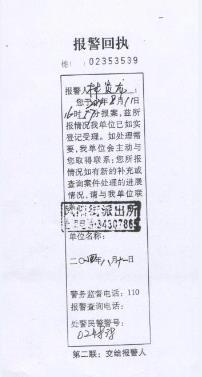 报警回执
02353539
报警人
您于 年8月11日
16时 分报案，兹所
报情况我单位已如实
登记受理。如处理需
要，我单位会主动与
您取得联系；您所报
情况如有新的补充或
查询案件处理的进展
情况，请与我单位联
派出所
34307865
单位名称：
二〇 年八月十一日
警务监督电话：110
报警查询电话：
处警民警警号：
024878
第二联：交给报警人